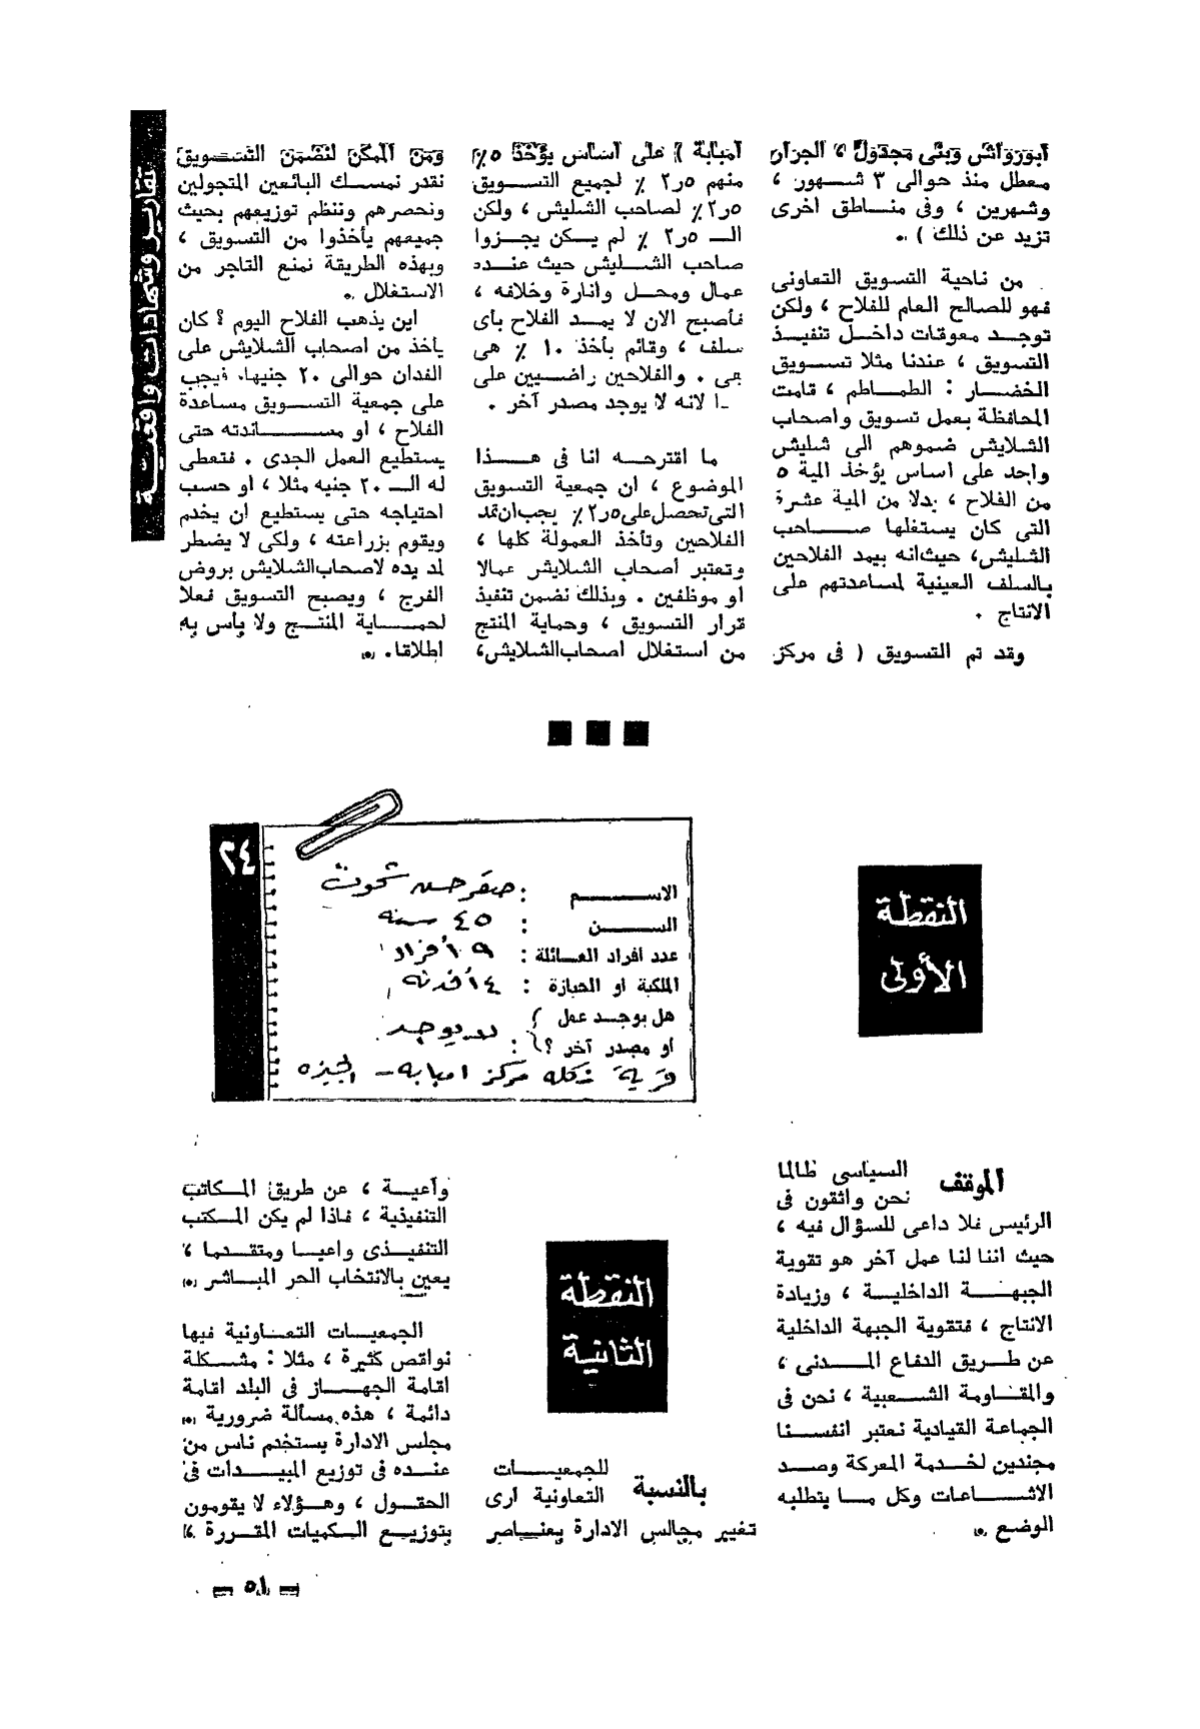 تقارير وشهادات واقعية
أبو رواش وبنى مجدول ، الجرار
معطل منذ حوالى ٣ شـهور ،
وشهرين ، وفى منـاطق اخرى
تزيد عن ذلك ) .
من ناحية التسويق التعاونى
فهو للصالح العام للفلاح ، ولكن
توجـد معوقات داخـل تنفيـذ
التسويق ، عندنا مثلا تسـويق
الخضـار : الطمـاطم ، قامت
المحافظة بعمل تسويق واصحاب
الشلايش ضموهم الى شليش
واحد على أساس يؤخذ المية ٥
من الفلاح ، بدلا من المية عشرة
التى كان يستغلها صـاحب
الشليش، حيث انه بيمد الفلاحين
بالسلف العينية لمساعدتهم على
الانتاج .
وقد تم التسويق ( فى مركز
امبابة ) على أساس يؤخذ ٥٪
منهم ٢ر٥ ٪ لجميع التسـويق
٢ر٥٪ لصاحب الشليش ، ولكن
الــ ٢ر٥ ٪ لم يـكن يجـزوا
صاحب الشـليش حيث عنـده
عمال ومحـل وانارة وخلافه ،
فأصبح الان لا يمـد الفلاح بأى
سلف ، وقائم بأخذ ١٠ ٪ هى
هى . والفلاحين راضـيين على
لانه لا يوجد مصدر آخر .
ما اقترحـه انا فى هـذا
الموضوع ، ان جمعية التسويق
التى تحصل على ٢ر٥ ٪ يجب ان تمد
الفلاحين وتأخذ العمولة كلها ،
وتعتبر أصحاب الشلايش عمالا
او موظفين . وبذلك نضمن تنفيذ
قرار التسويق ، وحماية المنتج
من استغلال اصحاب الشلايش،
ومن الممكن لنضمن التسـويق
نقدر نمسـك البائعين المتجولين
ونحصرهم وننظم توزيعهم بحيث
جميعهم يأخذوا من التسويق ،
وبهذه الطريقة نمنع التاجر من
الاستغلال .
اين يذهب الفلاح اليوم ؟ كان
يأخذ من اصحاب الشلايش على
الفدان حوالى ٢٠ جنيها، فيجب
على جمعية التسـويق مساعدة
الفلاح ، او مسـاندته حتى
يستطيع العمل الجدى . فتعطى
له الــ ٢٠ جنيه مثلا ، او حسب
احتياجه حتى يستطيع ان يخدم
ويقوم بزراعته ، ولكى لا يضطر
لمد يده لاصحاب الشلايش بروض
الفرج ، ويصبح التسويق فعلا
لحمـاية المنتـج ولا بأس به
اطلاقا.
٢٤
الاســـم : صقر حسن شحوت
الســـن : ٤٥ سنه
عدد أفراد العـائلة : ٩ أفراد
الملكية او الحيازة : ٤ أفدنه
هل يوجـد عمل
او مصدر آخر ؟ : لا يوجد
قرية نكله مركز امبابه – الجيزه
النقطة
الأولى
الموقف السياسى طالما
نحن واثقون فى
الرئيس فلا داعى للسؤال فيه ،
حيث اننا لنا عمل آخر هو تقوية
الجبهـة الداخليـة ، وزيادة
الانتاج ، فتقوية الجبهة الداخلية
عن طـريق الدفاع المـدنى ،
والمقـاومة الشـعبية ، نحن فى
الجماعة القيادية نعتبر انفسـنا
مجندين لخـدمة المعركة وصـد
الاشـاعات وكل مـا يتطلبه
الوضـع .
النقطة
الثانية
بالنسبة للجمعيـات
التعاونية ارى
تغيير مجالس الادارة بعنـاصر
واعيـة ، عن طريق المـكاتب
التنفيذية ، فاذا لم يكن المـكتب
التنفيـذى واعيـا ومتقـدما ،
يعين بالانتخاب الحر المبـاشر .
الجمعيـات التعـاونية فيها
نواقص كثيرة ، مثلا : مشـكلة
اقامة الجهـاز فى البلد اقامة
دائمة ، هذه مسألة ضرورية .
مجلس الادارة يستخدم ناس من
عنـده فى توزيع المبيـدات فى
الحقول ، وهـؤلاء لا يقومون
بتوزيـع الـكميات المقـررة ،
— ٥١ —